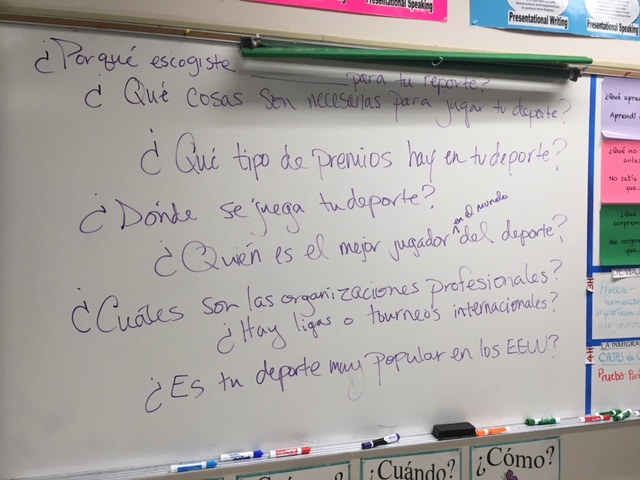 Presentational Speaking
Presentational Writing
Presentational Speaking
¿Porqué escogiste ________ para tu reporte?
¿Qué cosas son necesarias para jugar tu deporte?
¿Qué tipo de premios hay en tu deporte?
¿Dónde se juega tu deporte?
¿Quién es el mejor jugador en el mundo del deporte?
¿Cuáles son las organizaciones profesionales?
¿Hay ligas o tourneos internacionales?
¿Es tu deporte muy popular en los EEUU?
¿Qué
Aprendí
¿Qué no
antes
No sabía
que
3H
4H
LA INMIGRA
Prueba-
¿Cuándo?
¿Cómo?